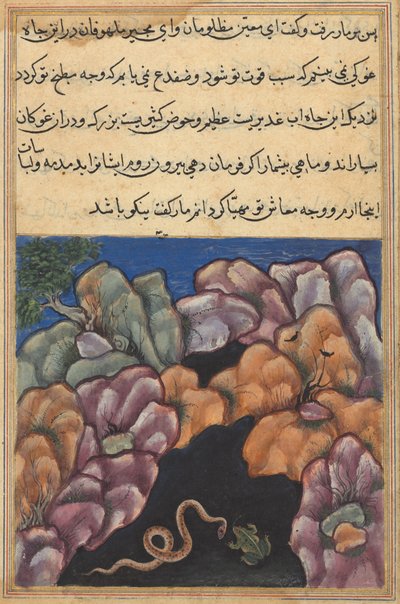 پس نو مار رفت و گفت ای معین مظلومان و ای مجیر ملهوفان در این چاه
غوکی نمی بینم که سبب قوت تو شود و ضفدع نمی یابم که وجه مطبخ تو گردد
نزدیک این چاه اب غدیریست عظیم و حوض کثیریست بزرک و در ان غوکان
بسیار اند و ماهی بیشمار اگر فرمان دهی بیرون روم و ایشانرا بدمدمه و لباسات
اینجا ارم و وجه معاش تو مهیا گردانم مار گفت نیکو باشد